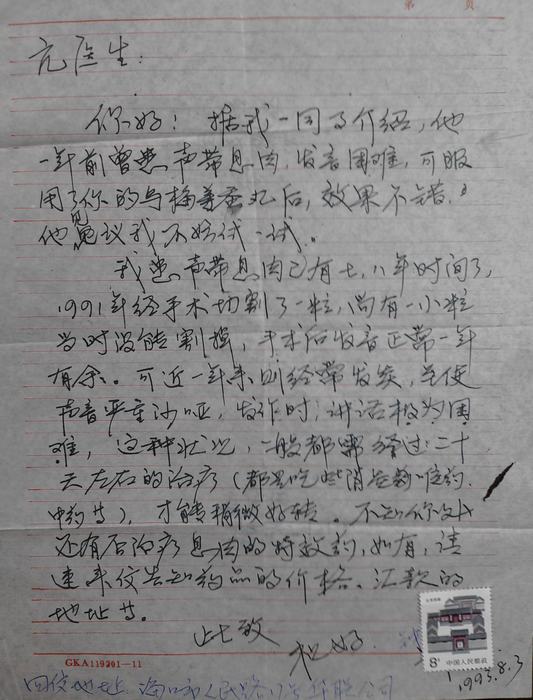 第 页
亢医生:
你好!据我一同事介绍,他
一年前曾患声带息肉,发音困难,可服
用了你的乌梅姜蚕丸后,效果不错。
他建议我不妨试一试。
我患声带息肉已有七、八年时间了,
1991年经手术切割了一粒,尚有一小粒
当时没能割掉,手术后发音正常一年
有余。可近一年来,则经常发炎,至使
声音严重沙哑,发作时,讲话极为困
难,这种状况,一般都需经过二十
天左右的治疗(都是吃些消炎药
中药等),才能稍微好转。不知你处
还有否治疗息肉的特效药,如有,请
速来信告知药品的价格、汇款的
地址等。
此致
1993.8.3
8分 中国人民邮政
GKA119201-11
回信地址:海口市人民路